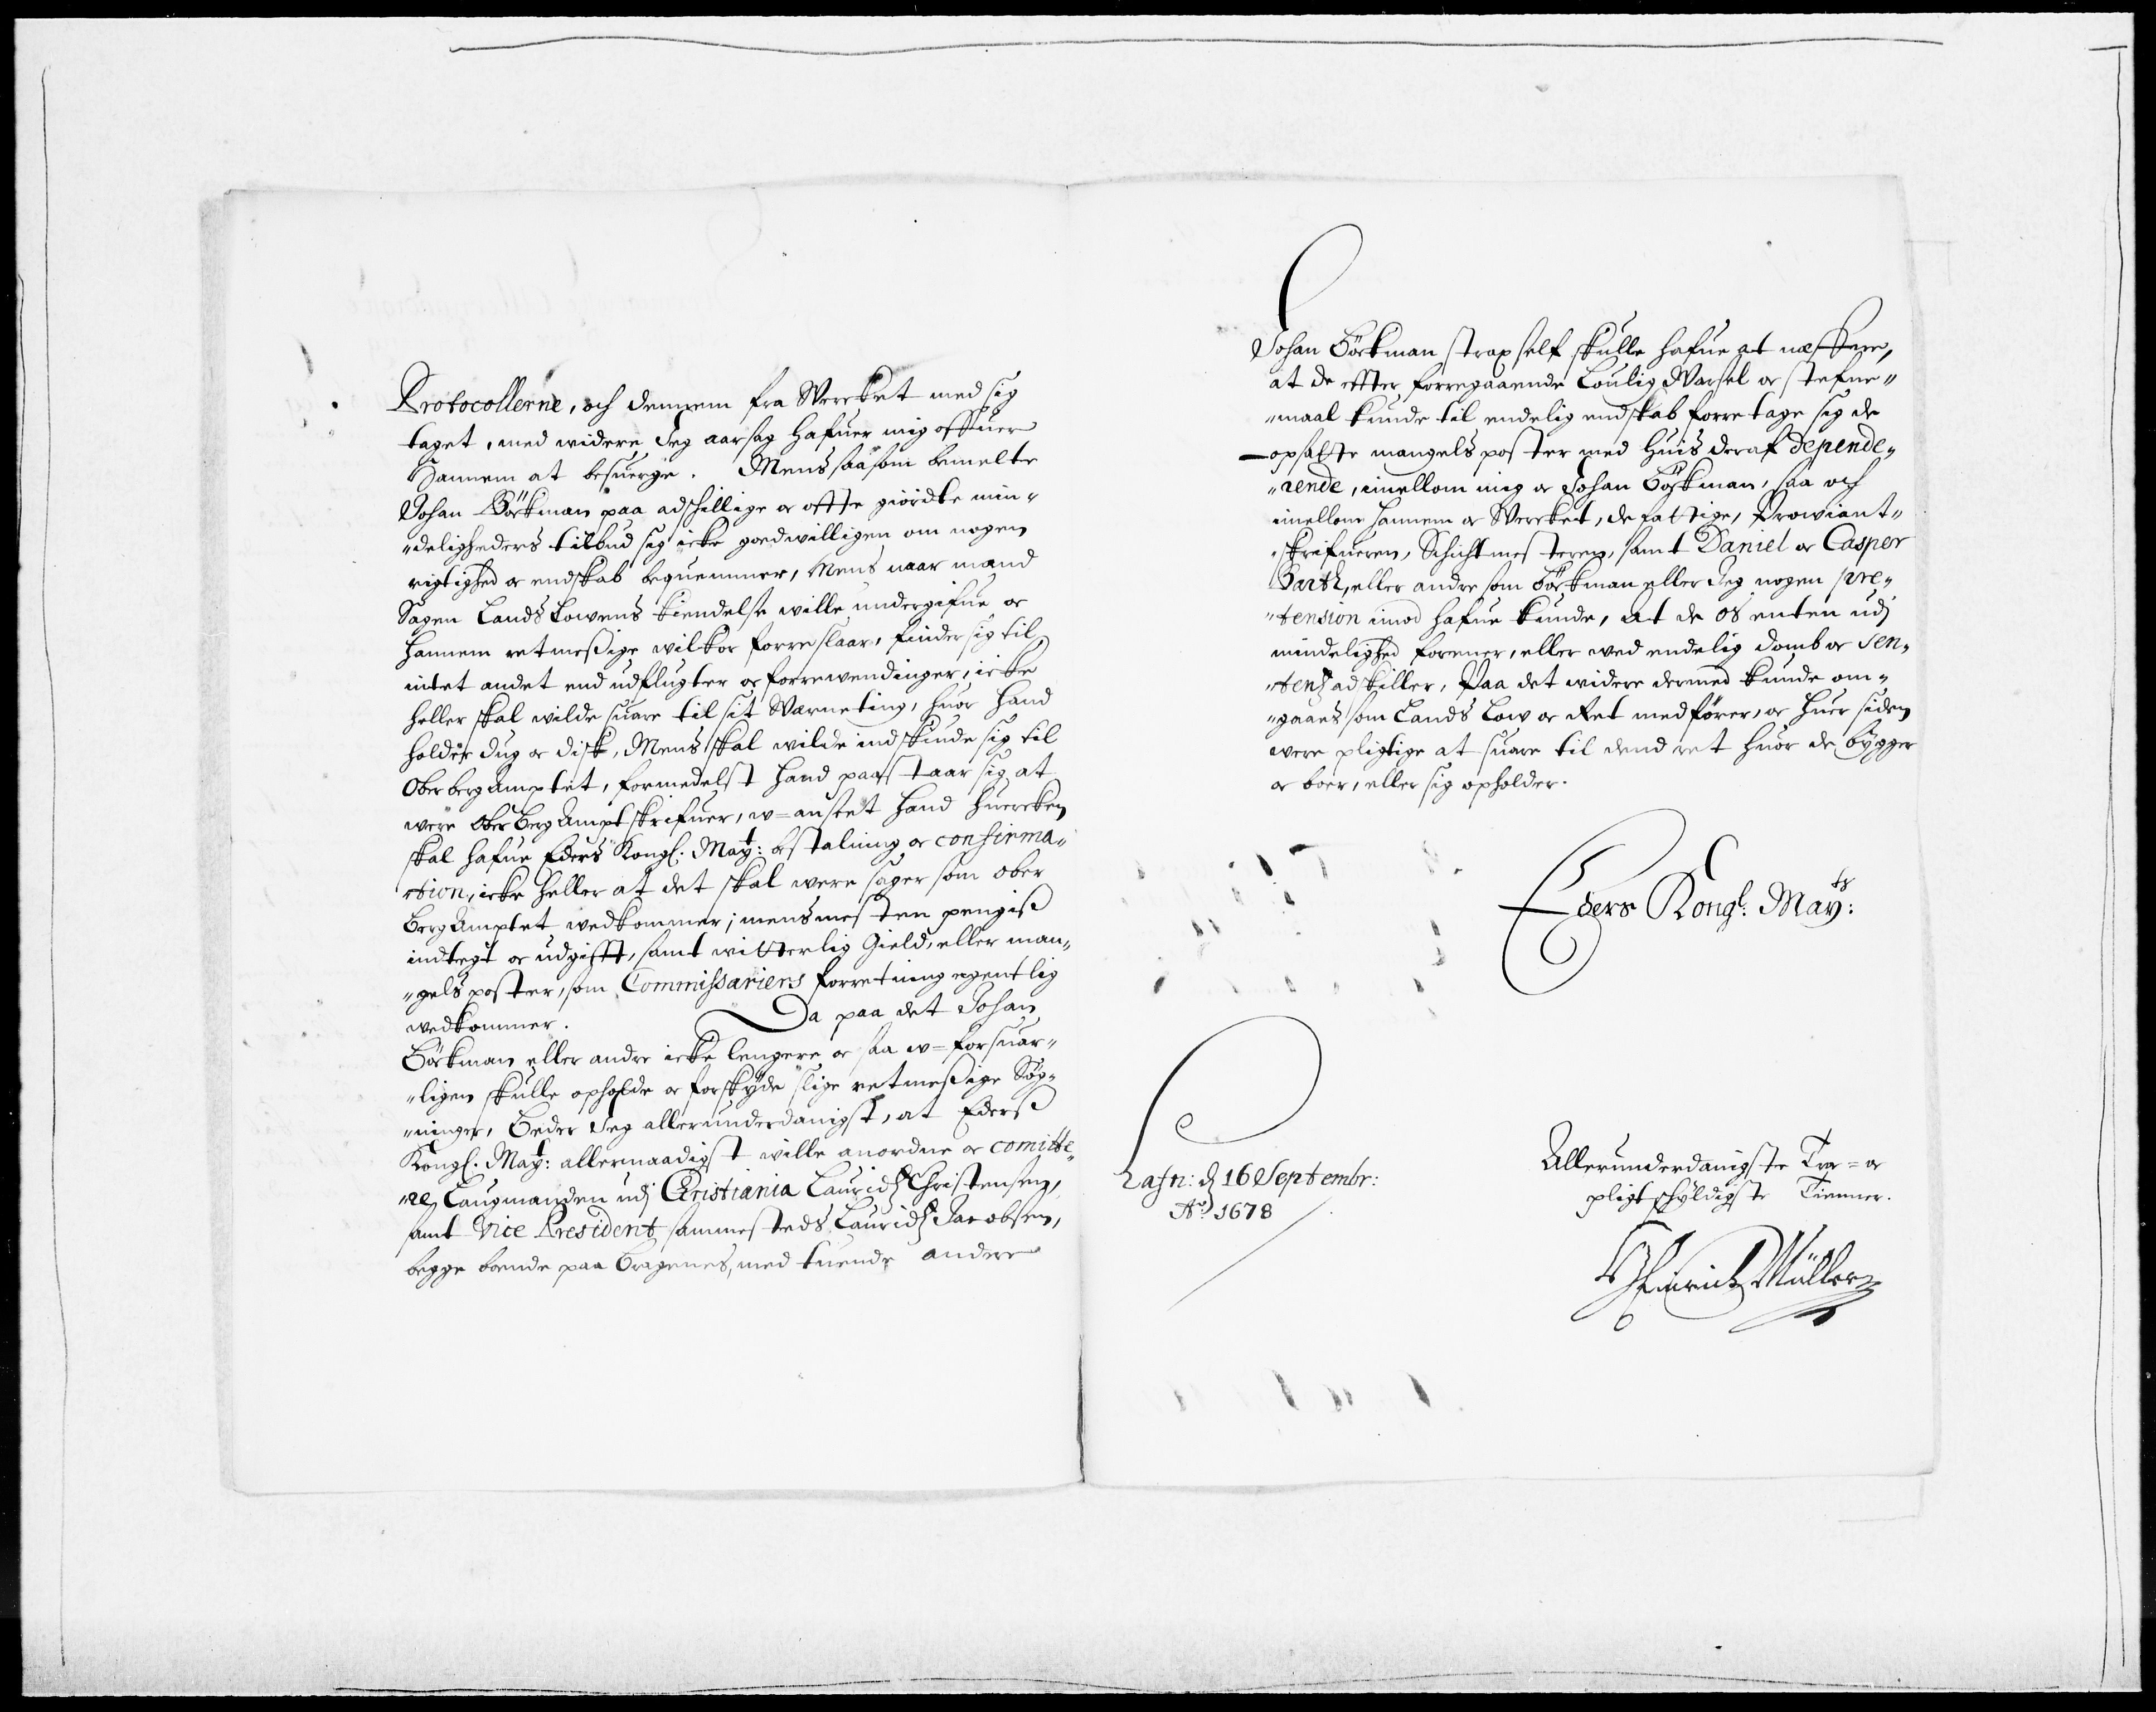 Protocollerne, och dennem fra Wercket med sig
taget, med widere Jeg aarsag hafuer mig offuer
Hannem at besuerge. Mens saasom bemelte
Johan Börkman paa adschillige or offte giordte min-
deligheders tilbud sig icke goedwilligen om nogen
rigtighed or endskab bequemmer, Mens naar mand
Sagen Lands Lowens kiendelse wille undergifue or
Hannem retmeßige wilkor forreslaar, finder sig til
intet andet end udflugter or forrewendinger, icke
heller skal wilde suare til sit Værneting, huor Hand
holder Dug or Disk, Mens skal wilde indskinde sig til
OberbergAmptet, formedelst Hand paastaar sig at
were OberBergAmptskrifuer, w=anseet Hand huercken
skal hafue Eders Kongl. Mayt: bestalning or confirma-
tion, icke heller at det skal were sager som ober
BergAmptet wedkommer; mens mesten pengiß
indtegt or udgifft, samt witterlig Gield, eller man-
gels poster, som Commissariens forretning egentlig
wedkommer. Da paa det Johan
Börkman eller andre icke lengere or saa w=forsuar-
ligen skulle opholde or forskyde slige retmeßige Søg-
ninger, Beder Jeg allerunderdanigst, at Ederß
Kongl. Mayt: allernaadigst wille anordne or comitte-
re Laugmanden udj Christiania Lauridz Christensen,
samt Vice President sammesteds Lauridz Jacobsen,
begge boende paa Bragenes, med tuende andere
Johan Börkman strax self skulle hafue at neffne,
at de effter forregaaende Loulig Warsel or stefne-
maal kunde til endelig endskab forretage sig de
opsatte mangels poster med Huis deraf depende-
rende, imellom mig or Johan Börkman, saa och
imellom Hannem or Wercket, de fattige, Prowiant-
skrifueren, Schichtmesteren, samt Daniel or Casper
Barth, eller andre som Börkman eller Jeg nogen pre-
tension imod hafue kunde, at de os enten udj
mindelighed forener, eller wed endelig domb or sen-
tenz adskiller, Paa det widere dermed kunde om-
gaaes som Lands Low or Ret medförer, or Huer siden
were pligtige at suare til dend ret huor de bygger
or boer, eller sig opholder.
Eders Kongl: Mayts:
Hafn: d 16 Septembr:
Ao 1678
Allerunderdanigste Troe= or
pligtschyldigste Tienner.
Heinrich Müller